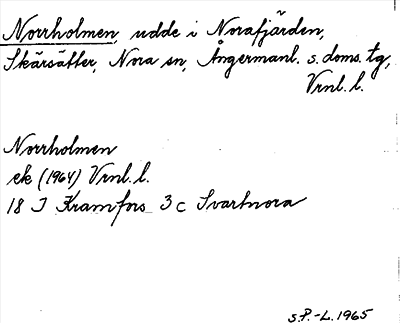 Norrholmen, udde i Norafjärden,
Skärsätter, Nora sn, Ångermanl. s. doms. tg,
Vrnl. l.
Norrholmen
ek (1964) Vrnl. l.
18 I Kramfors 3 c Svartnora
S.P.-L. 1965